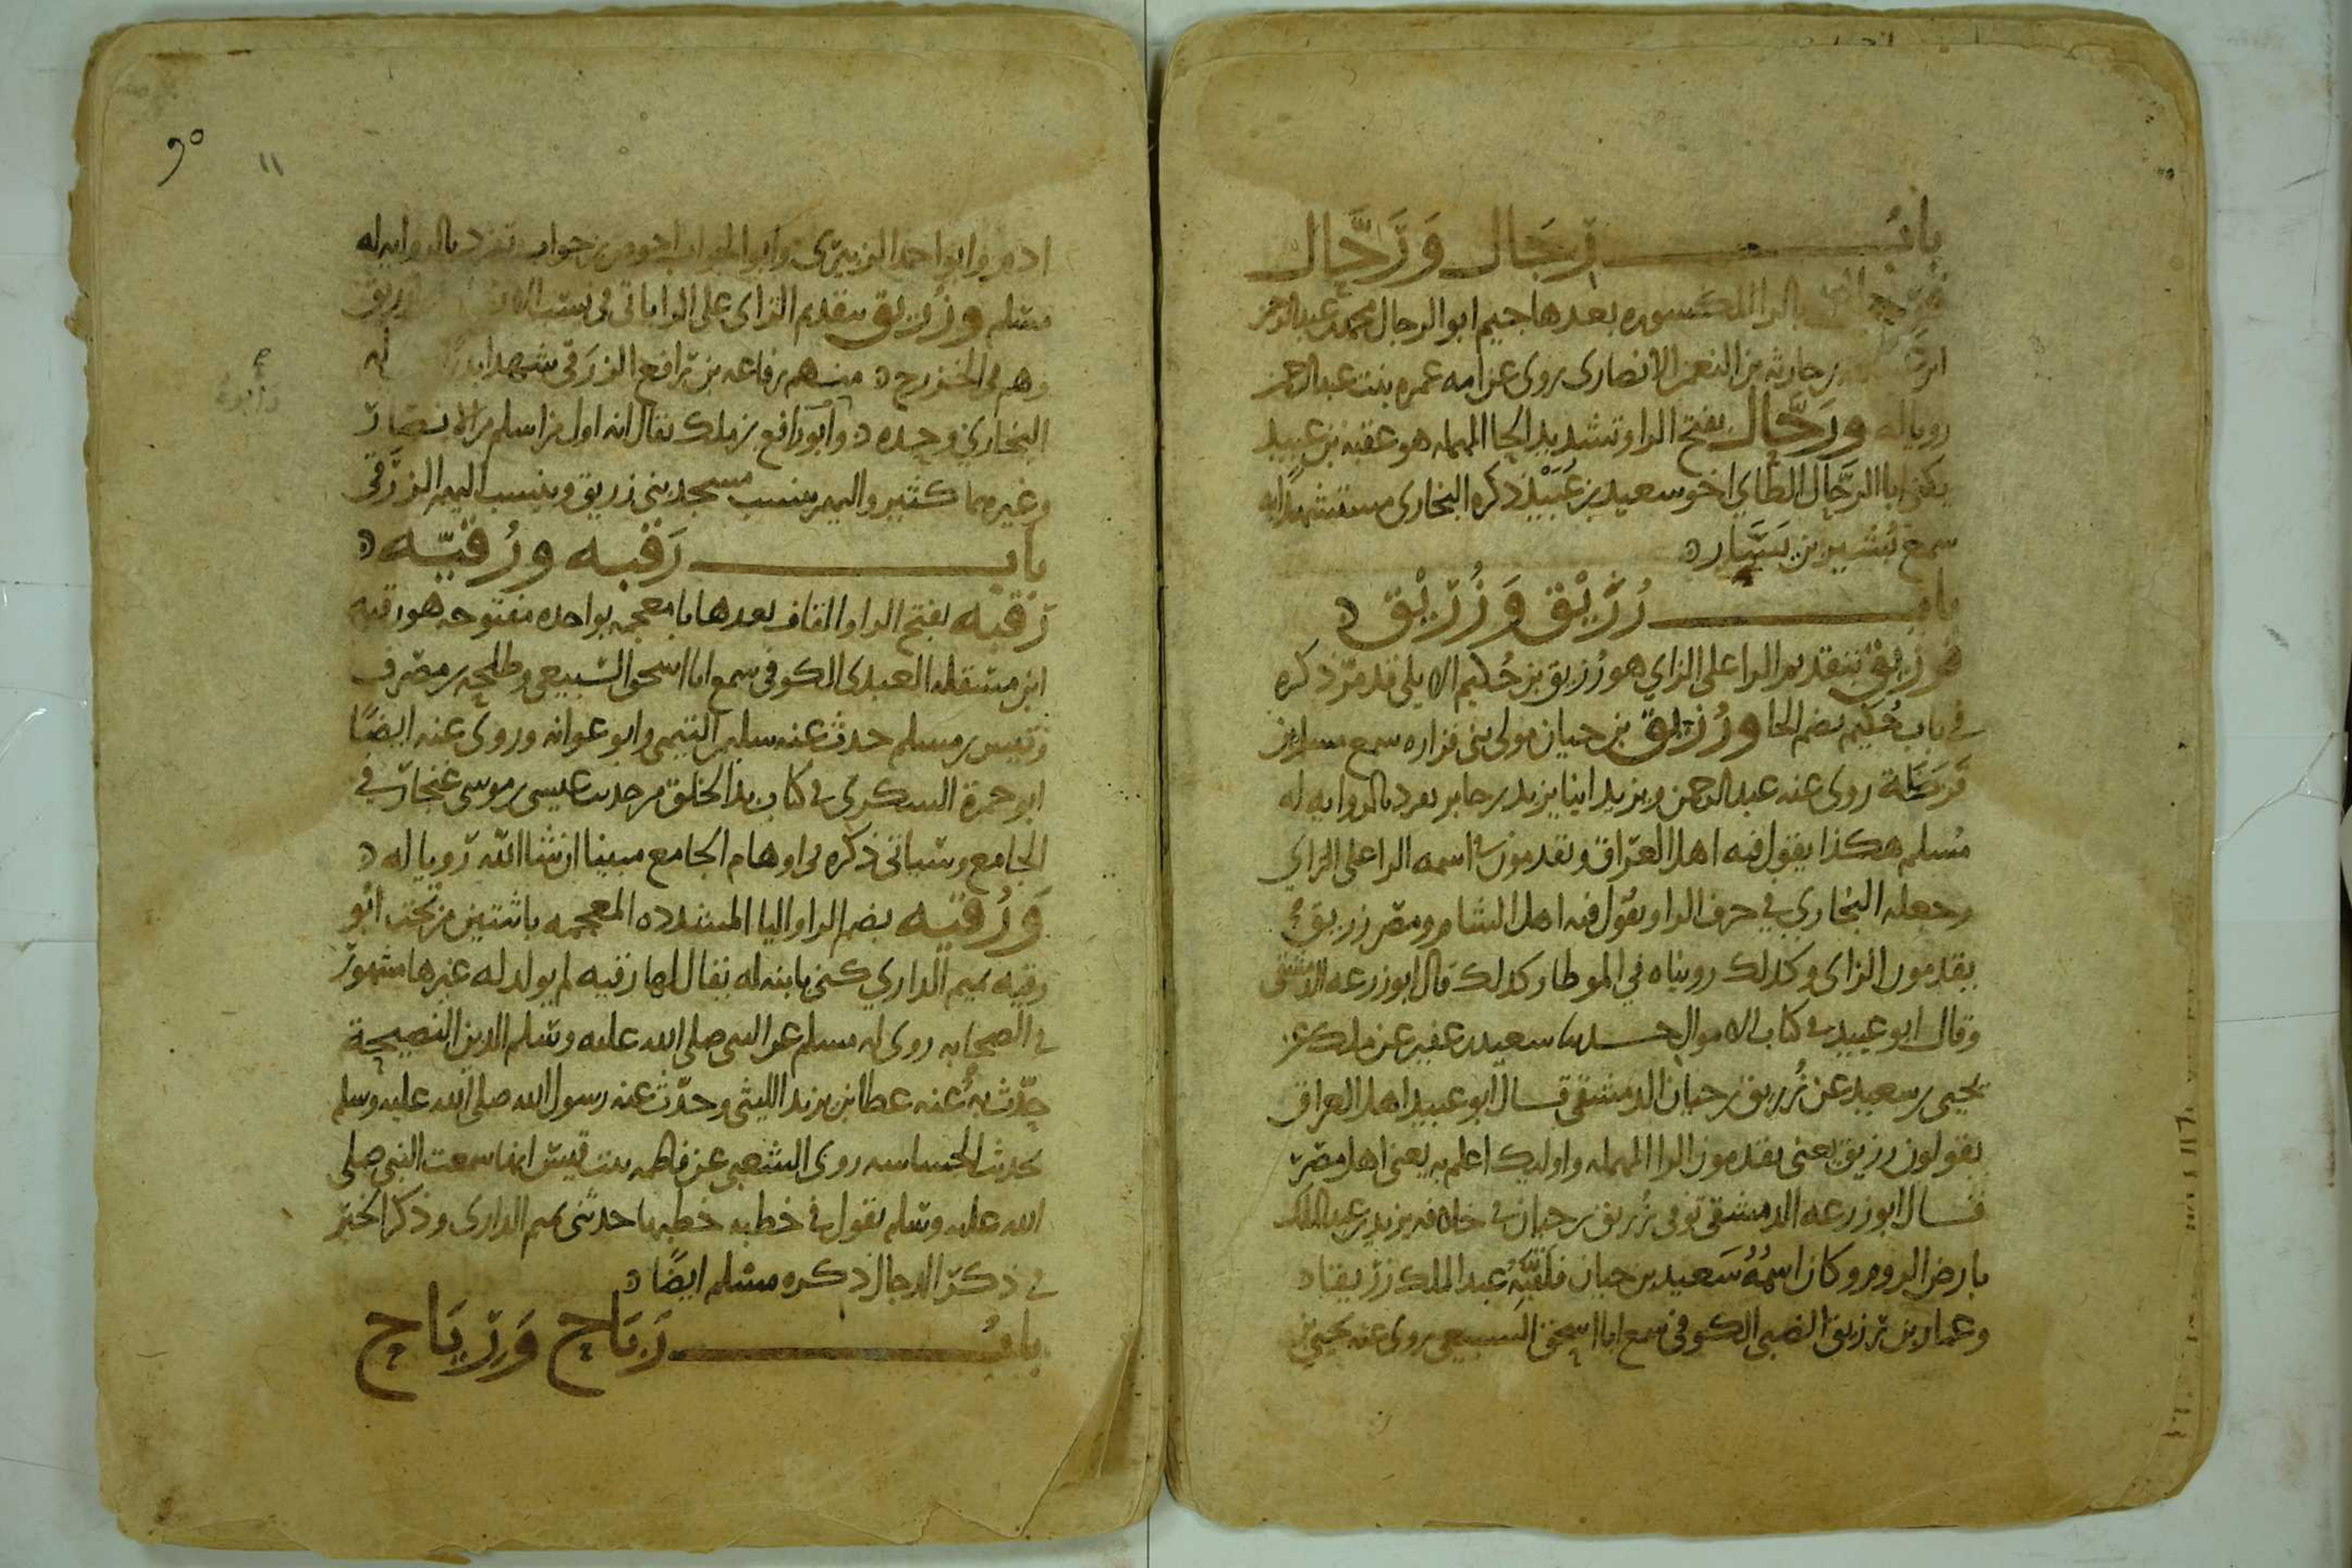 باب رِجَال وَرَحَّال
بالرا المكسوره بعدها جيم ابو الرجال محمد بن عبد الرحمن
بن حارثه بن النعمن الانصارى روى عن امه عمره بنت عبد الرحمن
رويا له ورَحَّال بفتح الرا وتشديد الحا المهمله هو عقبه بن عبيد
يكنى ابا الرحَّال الطاي اخو سعيد بن عُبَيْد ذكره البخارى مستشهدا به
سمع بُشير بن يَسَار
باب رُزَيْق وَزُرَيْق
فرزيق بتقديم الرا على الزاي هو رُزيق بن حُكيم الايلى قد مرّ ذكره
في باب حُكَيم بضم الحا ورُزيق بن حيان مولى بنى فزاره سمع مسلم بن
قَرَظَة روى عنه عبد الرحمن ويزيد ابنا يزيد بن جابر تفرد بالروايه له
مُسلم هكذا يقول فيه اهل العراق ويقدمون في اسمه الرا على الزاي
وجعله البخاري في حرف الرا ويقول فيه اهل الشام ومصر زريق
يقدمون الزاى وكذلك رويناه في الموطا وكذلك قال ابو زرعه الدمشقى
وقال ابو عبيد في كتاب الاموال حدثنا سعيد بن عفير عن ملك عن
يحيى بن سعيد عن زُريق بن حيان الدمشقي قال ابو عبيد اهل العراق
يقولون رزيق يعنى يقدمون الرا المهمله واوليك اعلم به يعنى اهل مصر
قال ابو زرعه الدمشقى توفى زُريق بن حيان في خلافه يزيد بن عبد الملك
بارض الروم وكان اسمُهُ سَعيد بن حيان فلقّبهُ عبد الملك زريقا
وعمار بن رزيق الضبى الكوفي سمع ابا اسحق السبيعى روى عنه يحيى بن
ادم وابو احمد الزبيرى وابو الجواب احوص بن جواب تفرد بالروايه له
مسلم وزُريق بتقديم الزاى على الرا ياتى فى نسب الانصار زريق
وهم فى الخزرج منهم رفاعه بن رافع الزرَقى شهد بدرا له
البخاري وحده وابوه رافع بن ملك يقال انه اول من اسلم من الانصار
وغيرهما كثير واليهم ينسب مسجد بنى زريق وينسب اليهم الزرَقى
باب رَقَبه ورُقَيّه
رَقبه بفتح الرا والقاف بعدها با معجمه بواحده مفتوحه هو رقبه
ابن مسقله العبدى الكوفى سمع ابا اسحق السبيعى وطلحه بن مصرف
وقيس بن مسلم حدث عنه سليمن التيمى وابو عوانه وروى عنه ايضًا
ابو حمزة السكرى في كتاب بدا الخلق من حديث عيسى بن موسى غنجار في
الجامع وسياتى ذكره في اوهام الجامع مبينا ان شا الله رويا له
وَرُقيه بضم الرا واليا المشدده المعجمه باثنتين من تحت ابُو
رقيه تميم الداري كنى بابنه له يقال لها رقيه لم يولد له غيرها مشهور
في الصحابه روى له مسلم عن النبى صلى الله عليه وسلم الدين النصيحة
حدّث به عنه عطا بن يزيد الليثى وحدّث عنه رسول الله صلى الله عليه وسلم
بحديث الجساسه روى الشعبى عن فاطمه بنت قيس انها سمعت النبى صلى
الله عليه وسلم يقول في خطبه خطبها حدثنى تميم الدارى وذكر الخبر
في ذكر الدجال ذكره مسلم ايضًا
باب رَبَاح وَرِيَاح